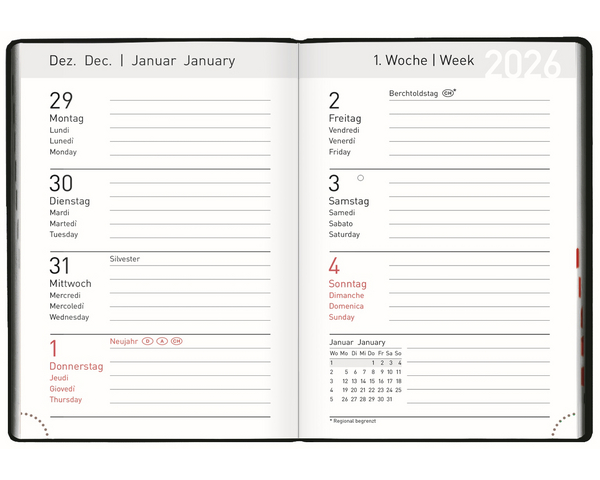 Dez. Dec. | Januar January
29
Montag
Lundi
Lunedí
Monday
30
Dienstag
Mardi
Martedí
Tuesday
31
Silvester
Mittwoch
Mercredi
Mercoledí
Wednesday
1
Neujahr D A CH
Donnerstag
Jeudi
Giovedí
Thursday
1. Woche | Week 2026
2
Berchtoldstag CH*
Freitag
Vendredi
Venerdí
Friday
3
Samstag
Samedi
Sabato
Saturday
4
Sonntag
Dimanche
Domenica
Sunday
Januar January
Wo Mo Di Mi Do Fr Sa So
1 1 2 3 4
2 5 6 7 8 9 10 11
3 12 13 14 15 16 17 18
4 19 20 21 22 23 24 25
5 26 27 28 29 30 31
* Regional begrenzt